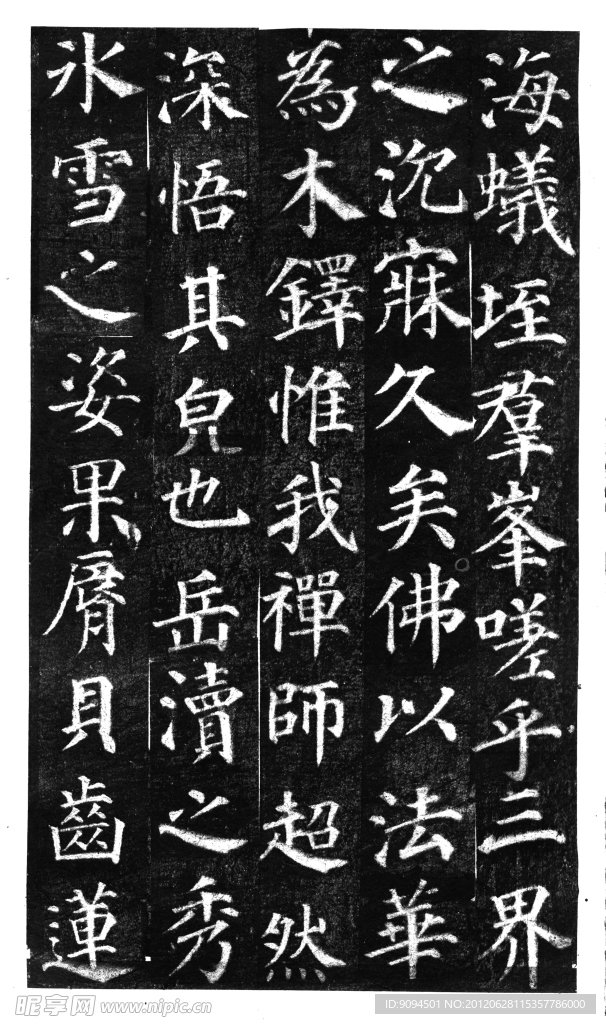 海蟻垤羣峯嗟乎三界
之沉寐久矣佛以法華
為木鐸惟我禪師超然
深悟其皃也岳瀆之秀
氷雪之姿果脣貝齒蓮
昵享网 www.nipic.cn
ID:9094501 NO:20120628115357786000